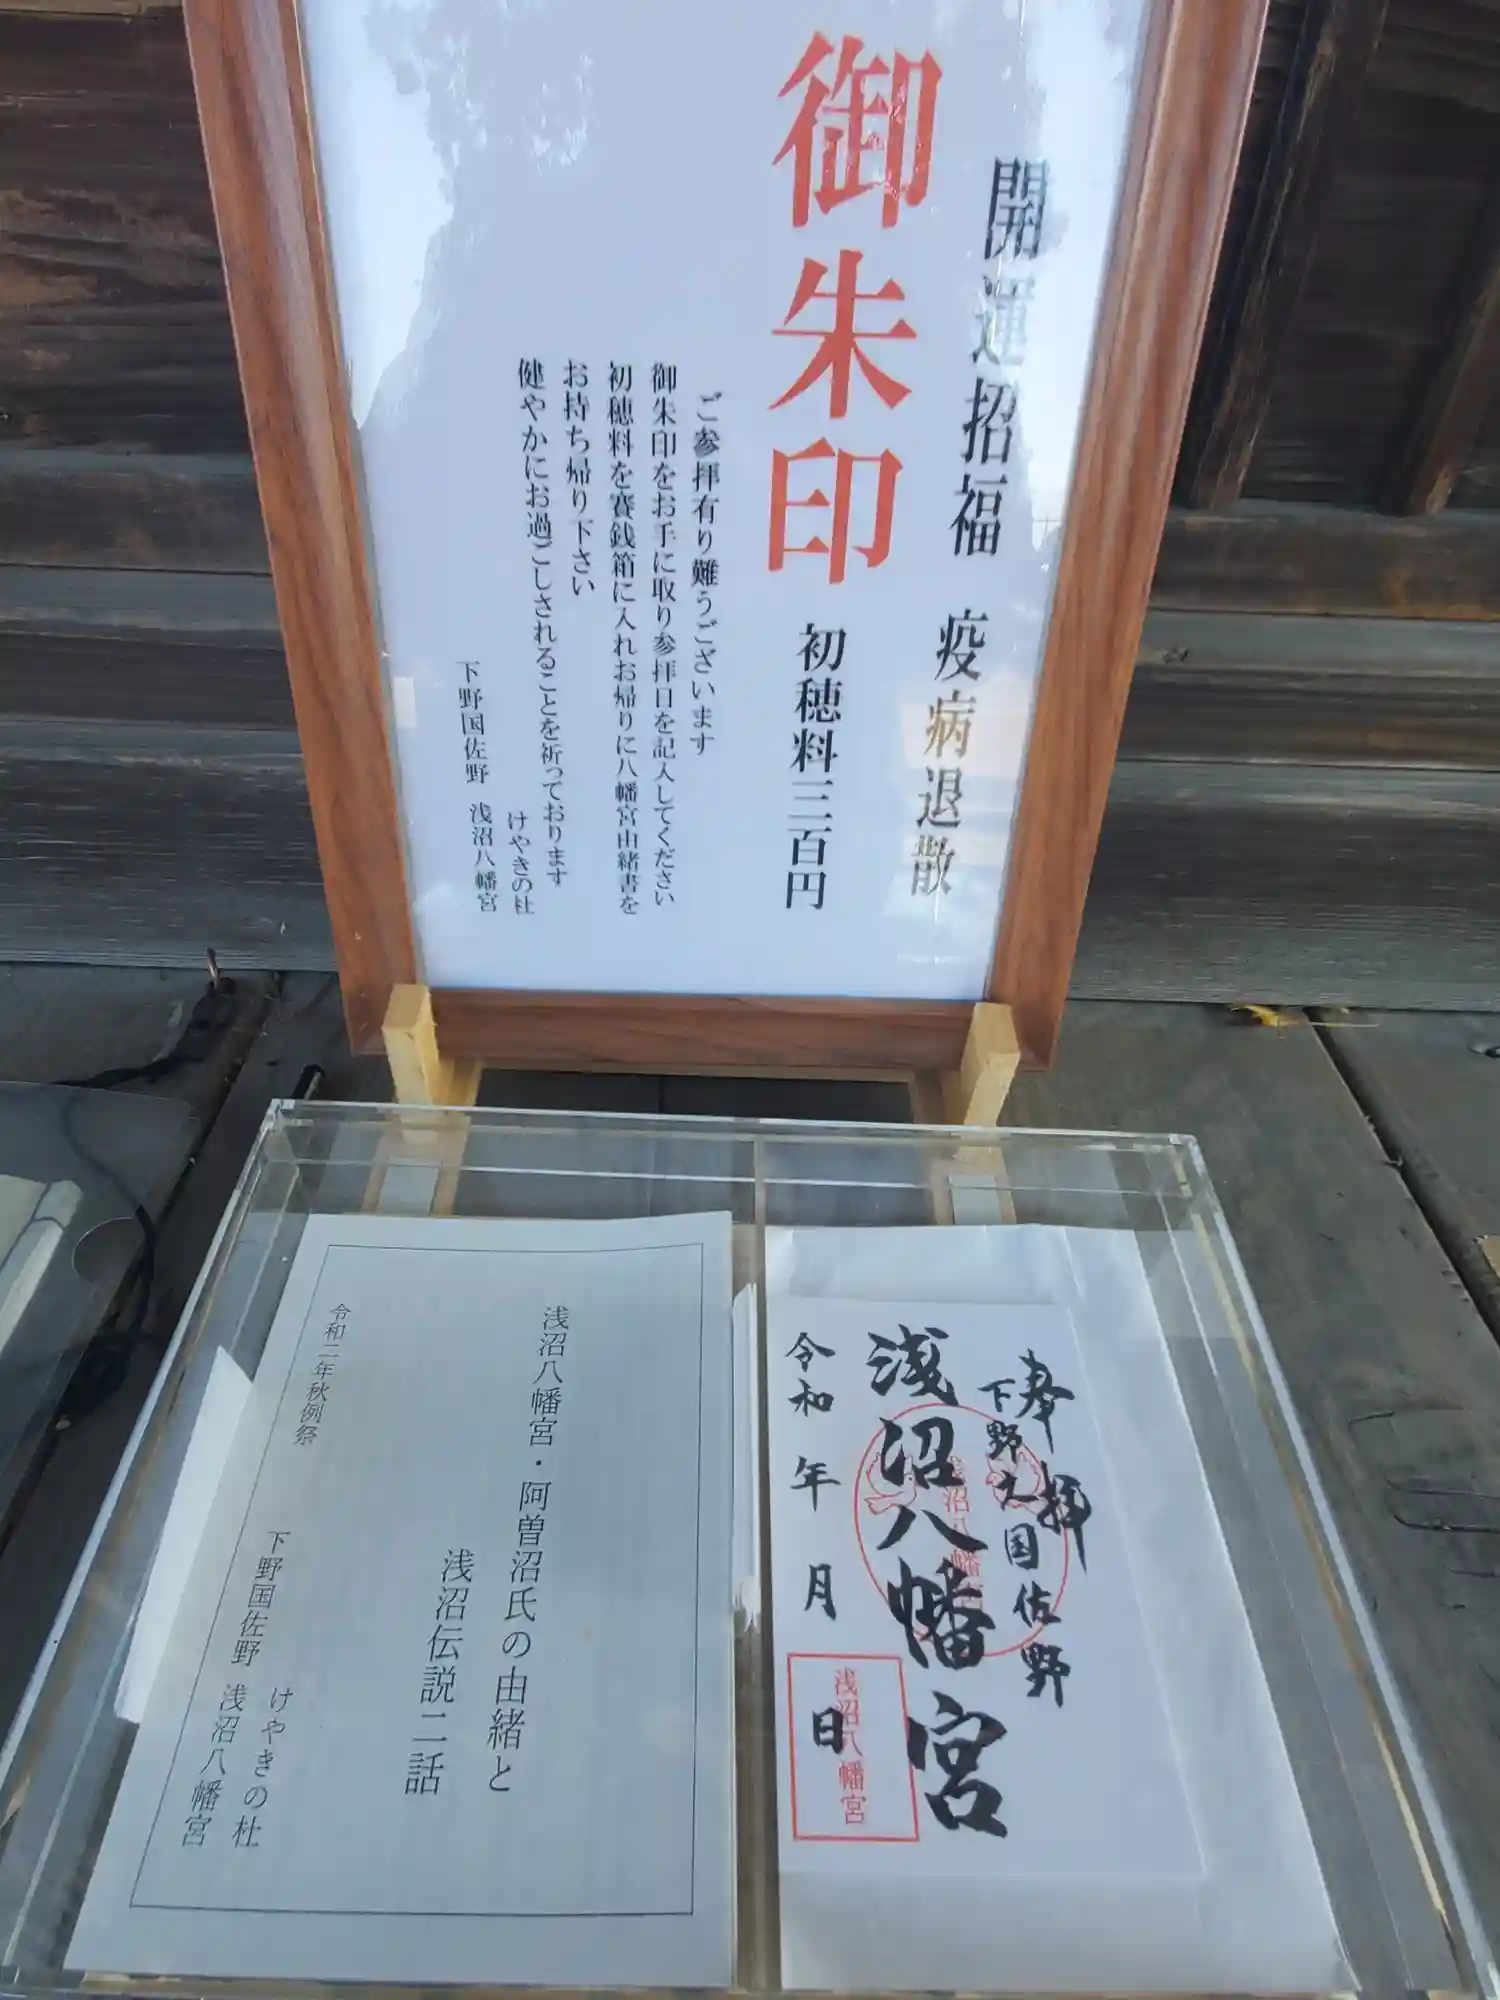 開運招福　疫病退散
御朱印　初穂料三百円
ご参拝有り難うございます
御朱印をお手に取り参拝日を記入してください
初穂料を賽銭箱に入れお帰りに八幡宮由緒書を
お持ち帰り下さい
健やかにお過ごしされることを祈っております
けやきの杜
下野国佐野　浅沼八幡宮
奉拝
下野之国佐野
浅沼八幡宮
浅沼八幡宮
令和　年　月　日
浅沼八幡宮
浅沼八幡宮・阿曽沼氏の由緒と
浅沼伝説二話
令和二年秋例祭
けやきの杜
下野国佐野　浅沼八幡宮